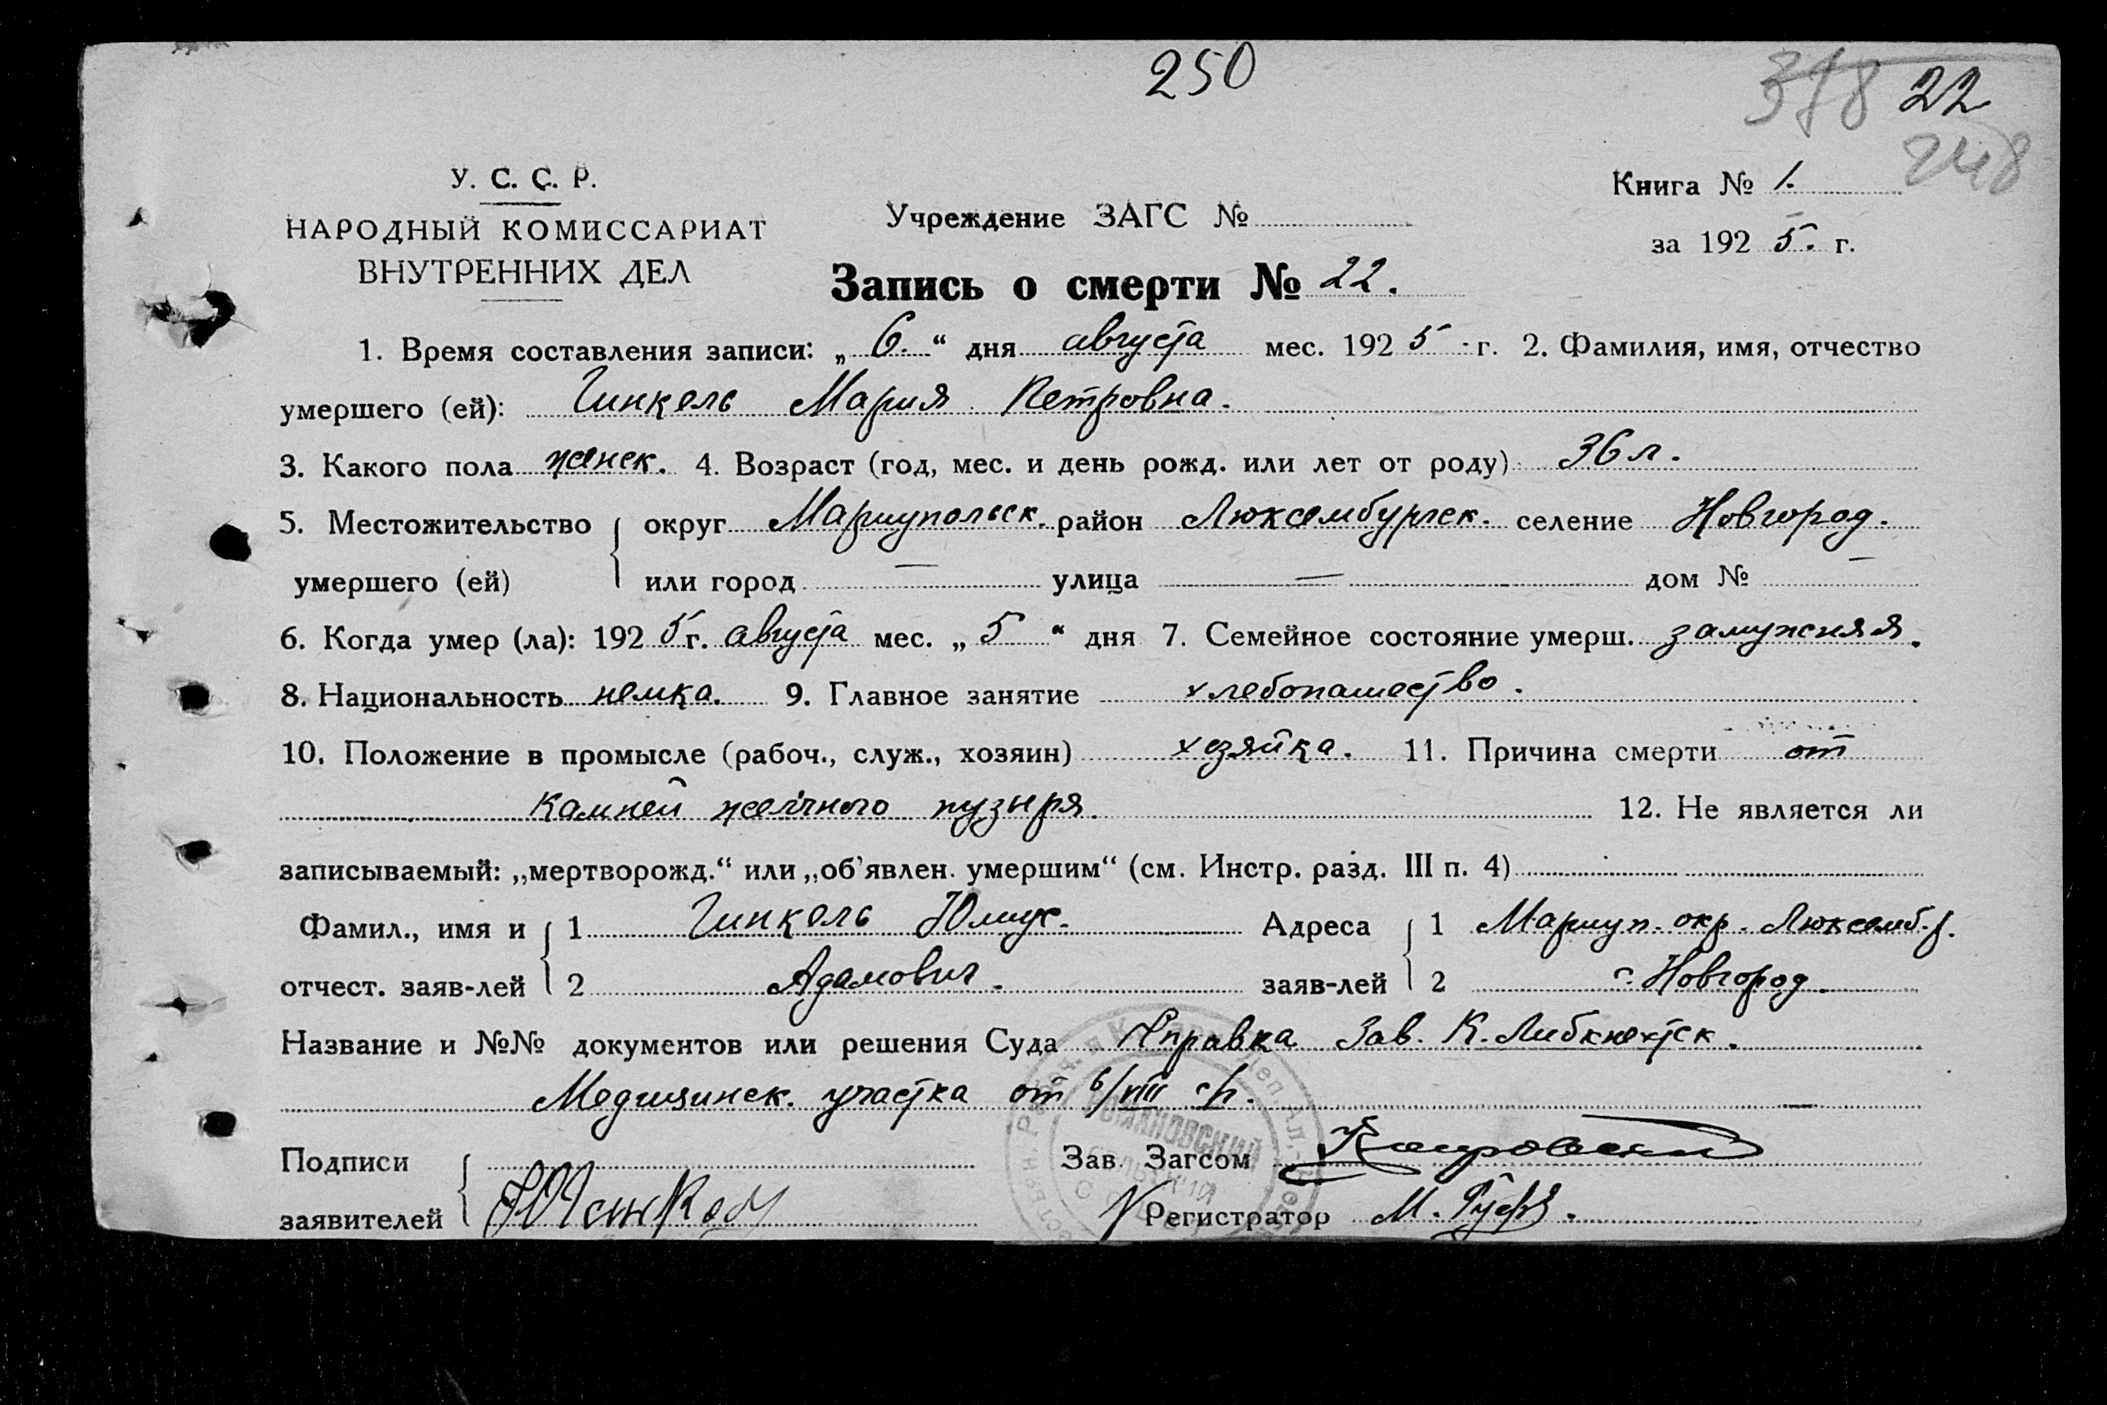 250
318 22
248
У. С. С. Р.
НАРОДНЫЙ КОМИССАРИАТ
ВНУТРЕННИХ ДЕЛ
Учреждение ЗАГС №
Книга № 1.
за 192 5. г.
Запись о смерти № 22.
1. Время составления записи: „ 6. “ дня августа мес. 192 5 г. 2. Фамилия, имя, отчество
умершего (ей): Гинкель Мария Петровна.
3. Какого пола женск. 4. Возраст (год, мес. и день рожд. или лет от роду) 36 л.
5. Местожительство округ Мариупольск. район Люксембургск. селение Новгород.
умершего (ей) или город — улица — дом № —
6. Когда умер (ла): 192 5 г. августа мес. „ 5 “ дня 7. Семейное состояние умерш. замужняя.
8. Национальность немка. 9. Главное занятие хлебопашество.
10. Положение в промысле (рабоч., служ., хозяин) хозяйка. 11. Причина смерти от
камней желчного пузыря. 12. Не является ли
записываемый: „мертворожд.“ или „об'явлен. умершим“ (см. Инстр. разд. III п. 4)
Фамил., имя и 1 Гинкель Юлиус. Адреса 1 Мариуп. окр. Люксемб. р.
отчест. заяв-лей 2 Адамович. заяв-лей 2 с. Новгород.
Название и №№ документов или решения Суда Справка Зав. К. Либкнехтск.
Медицинск. участка от 6/VIII с/г.
Подписи Зав. Загсом
заявителей Регистратор М.